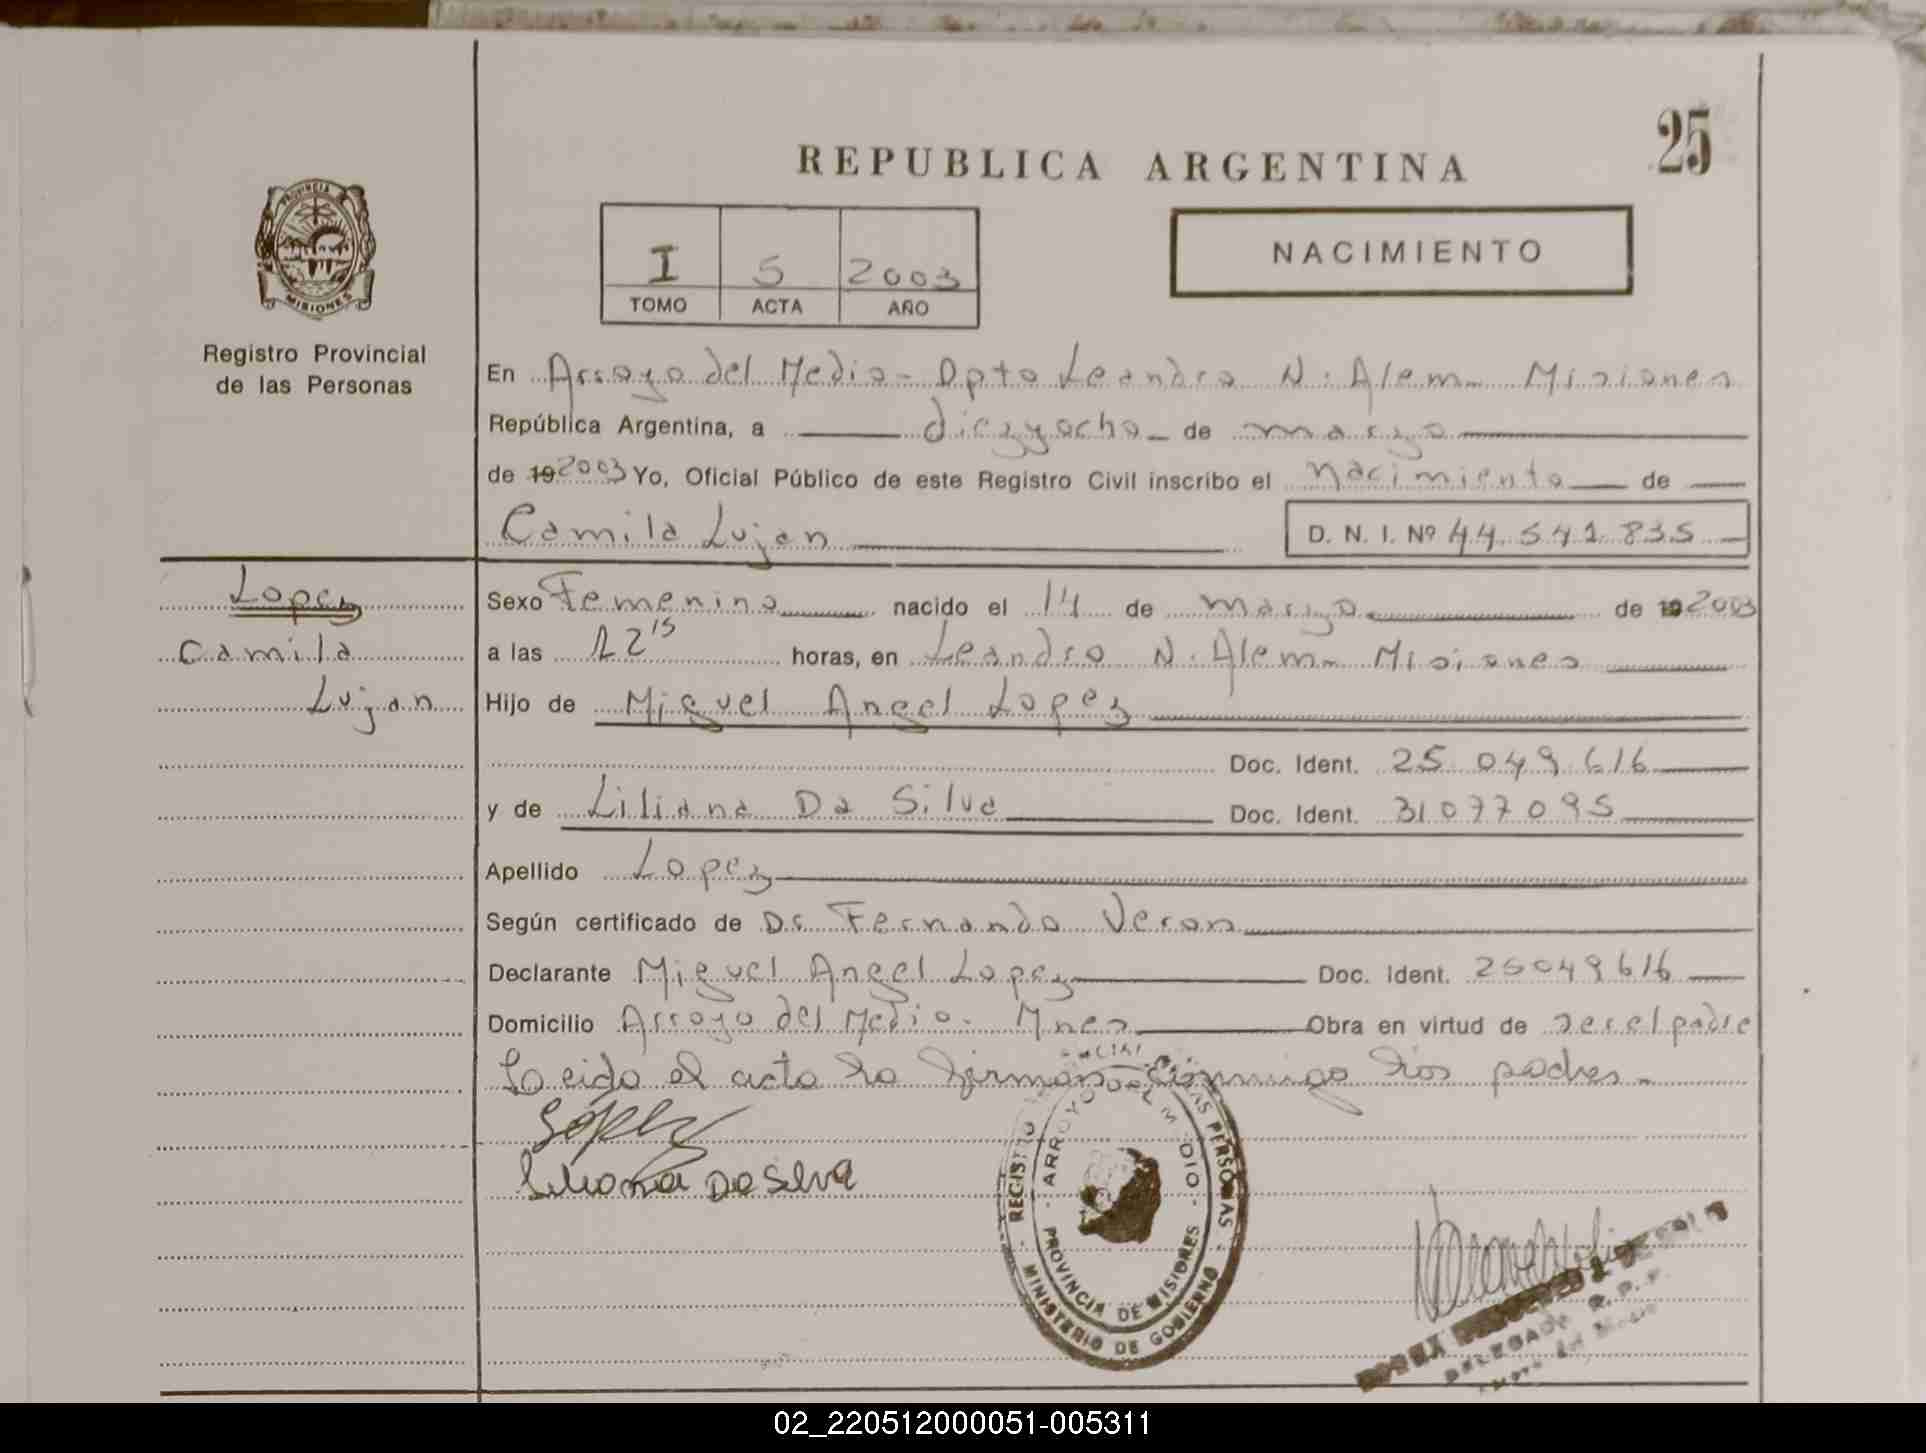 25
REPUBLICA ARGENTINA
PROVINCIA
MISIONES
Registro Provincial
de las Personas
I 5 2003
TOMO ACTA AÑO
NACIMIENTO
En Arroyo del Medio - Dpto Leandro N. Alem Misiones
República Argentina, a diezyocho de marzo
de 19 2003 Yo, Oficial Público de este Registro Civil inscribo el nacimiento de
Camila Lujan D. N. I. Nº 44.541.835
Lopez
Camila
Lujan
Sexo Femenino nacido el 14 de marzo de 19 2003
a las 12 15 horas, en Leandro N. Alem Misiones
Hijo de Miguel Angel Lopez
Doc. Ident. 25 049 616
y de Liliana Da Silva Doc. Ident. 31077095
Apellido Lopez
Según certificado de Dr Fernando Veron
Declarante Miguel Angel Lopez Doc. Ident. 25049616
Domicilio Arroyo del Medio. Mnes Obra en virtud de ser el padre
el acta padres.
Liliana Da Silva
REGISTRO LAS PERSONAS
MINISTERIO DE GOBIERNO
ARROYO DEL MEDIO
PROVINCIA DE MISIONES
DELEGADA R.P.P.
02_220512000051-005311